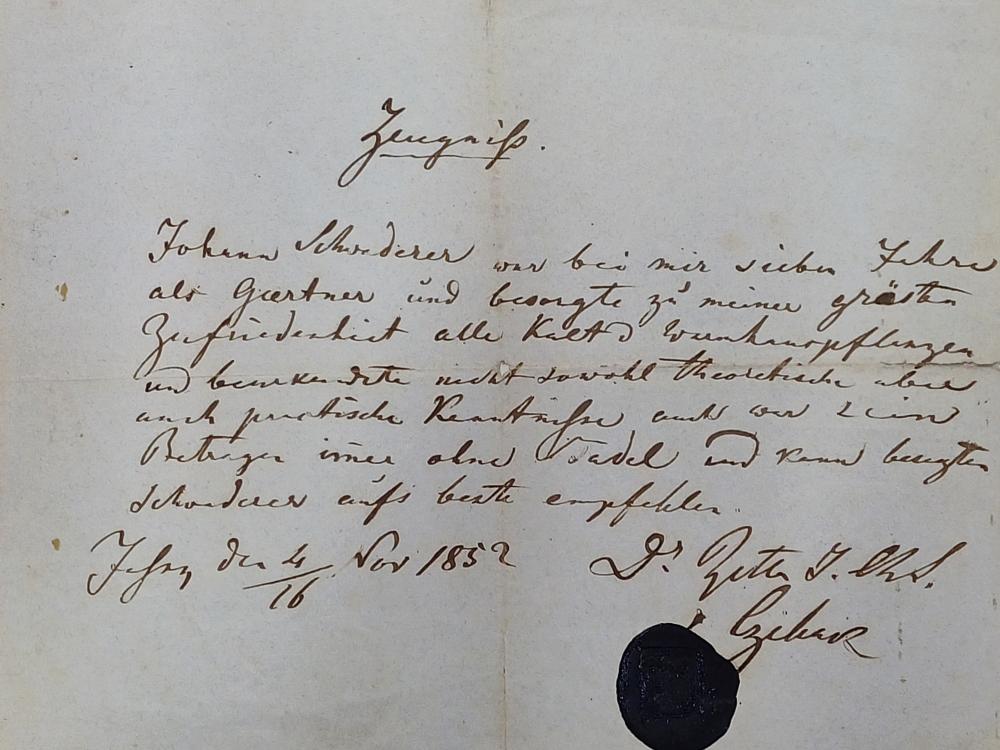 Zeugniß.
Johann Schwederer war bei mir sieben Jahre
als Gaertner und besorgte zu meiner grösten
Zufriedenheit alle Kalt Warmhauspflanzen
und beurkundete nicht sowohl theoretische aber
auch practische Kenntniße auch war sein
Betragen imer ohne Tadel und kann besagten
Schwederer aufs beste empfehlen.
den 4/16 Nov 1852 Dr